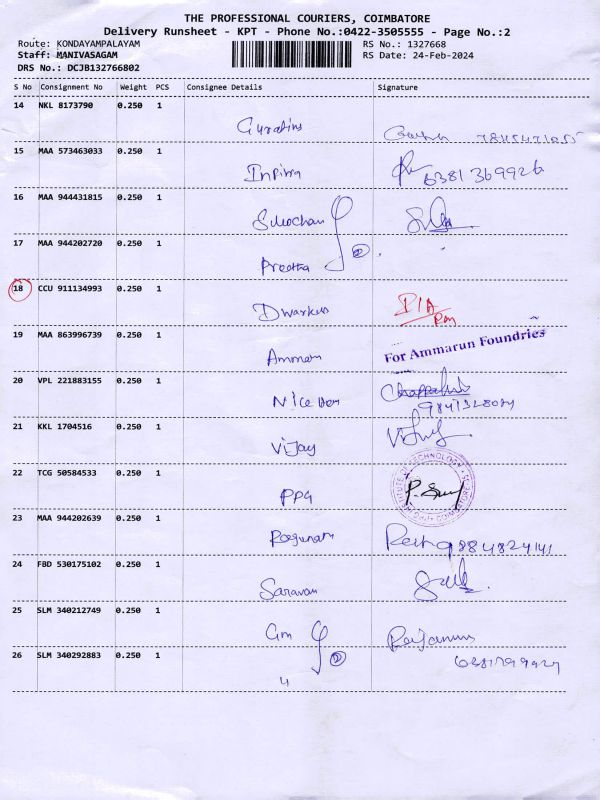 THE PROFESSIONAL COURIERS, COIMBATORE
Delivery Runsheet - KPT - Phone No.:0422-3505555 - Page No.:2
Route: KONDAYAMPALAYAM
RS No.: 1327668
Staff: MANIVASAGAM
RS Date: 24-Feb-2024
DRS No.: DCJB132766802
S No Consignment No Weight PCS Consignee Details Signature
14 NKL 8173790 0.250 1
15 MAA 573463033 0.250 1
6381369926
16 MAA 944431815 0.250 1
Sulochan
17 MAA 944202720 0.250 1
Preetha
18 CCU 911134993 0.250 1
19 MAA 863996739 0.250 1
Amman
For Ammarun Foundries
20 VPL 221883155 0.250 1
21 KKL 1704516 0.250 1
Vijay
22 TCG 50584533 0.250 1
PPG
23 MAA 944202639 0.250 1
9884824141
24 FBD 530175102 0.250 1
Saravan
25 SLM 340212749 0.250 1
26 SLM 340292883 0.250 1